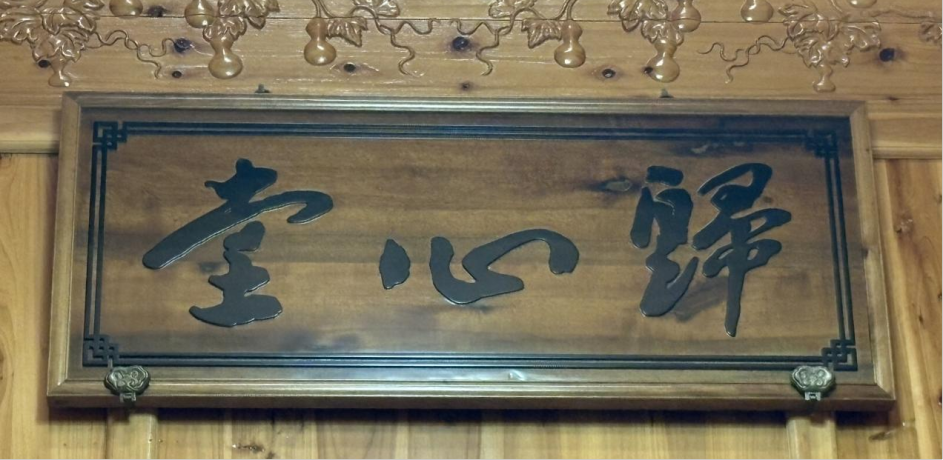 歸心堂